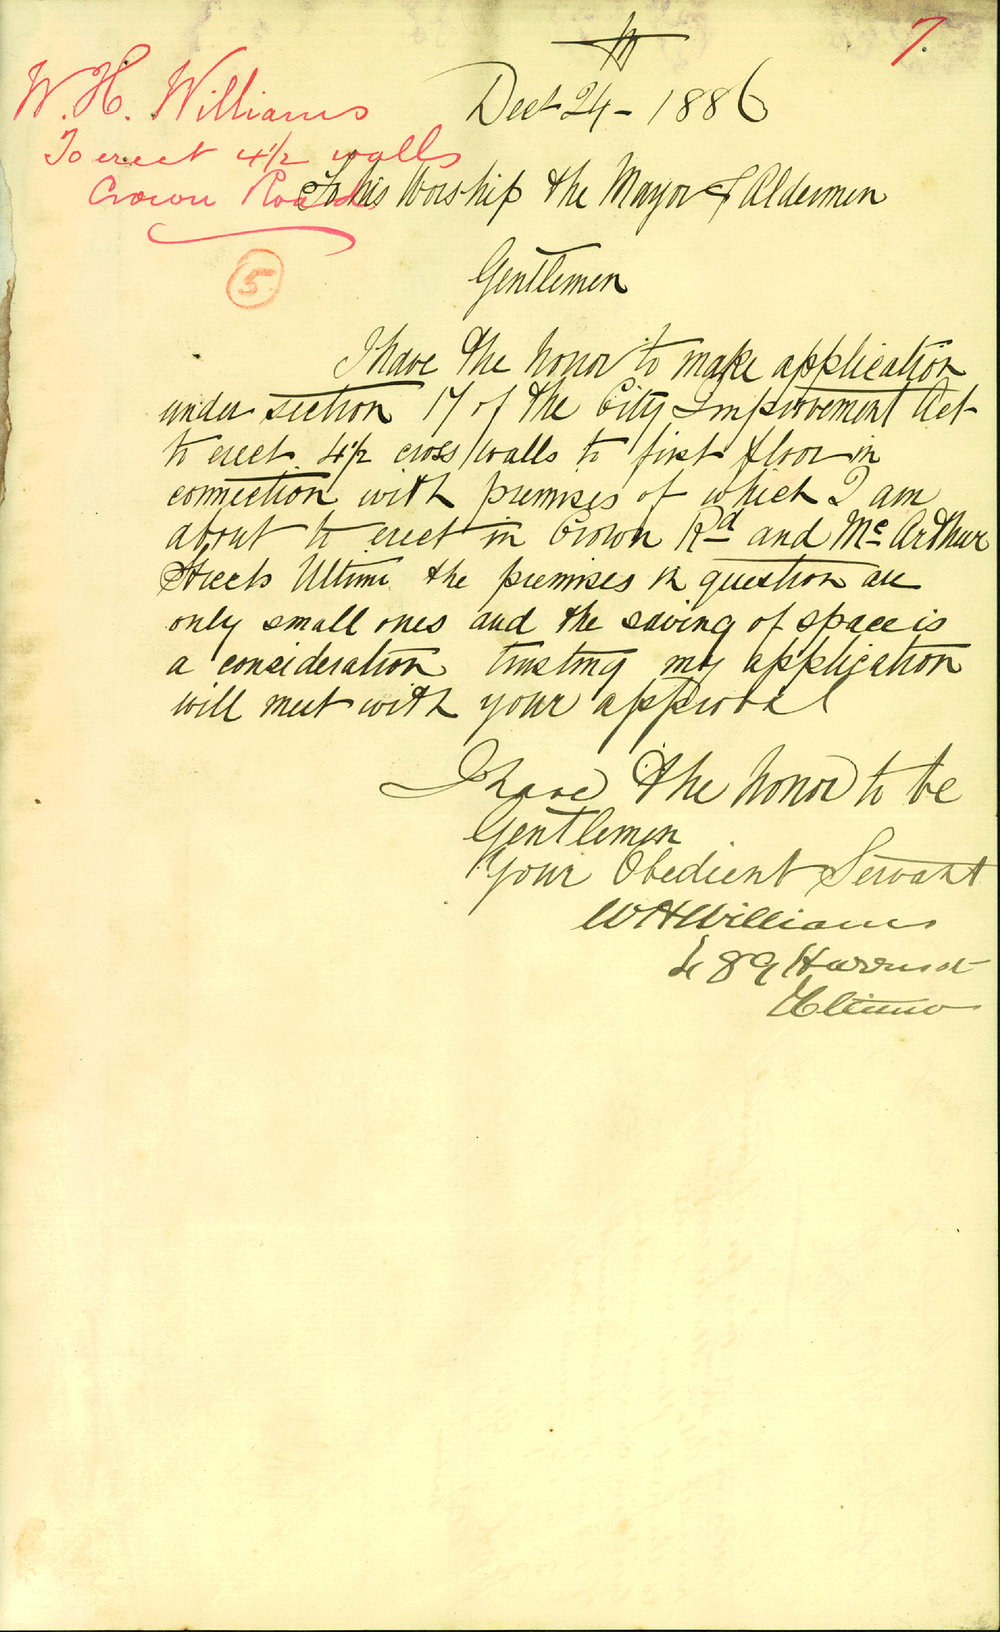 7.
W. H. Williams
To erect 4½ walls
Crown Road
5
Dect 24 - 1886
To his Worship the Mayor & Aldermen
Gentlemen
I have the honor to make application
under section 17 of the City Improvement Act
to erect 4½ cross walls to first floor in
connection with premises of which I am
about to erect in Crown Rd and Mc Arthur
Streets Ultimo the premises in question are
only small ones and the saving of space is
a consideration trusting my application
will meet with your approval
I have the honor to be
Gentlemen
Your Obedient Servant
WHWilliams
89 Harris st
Ultimo